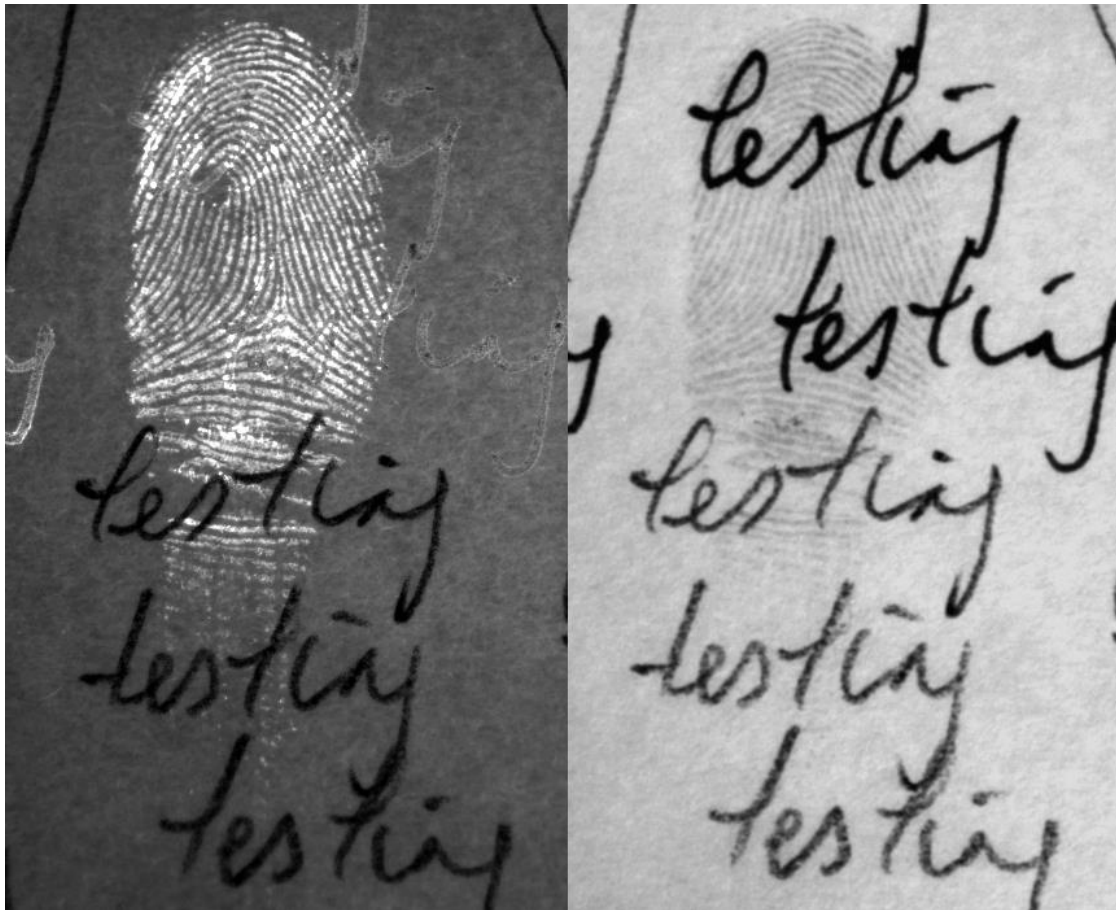 testing
testing
testing
testing
testing
testing
testing
testing